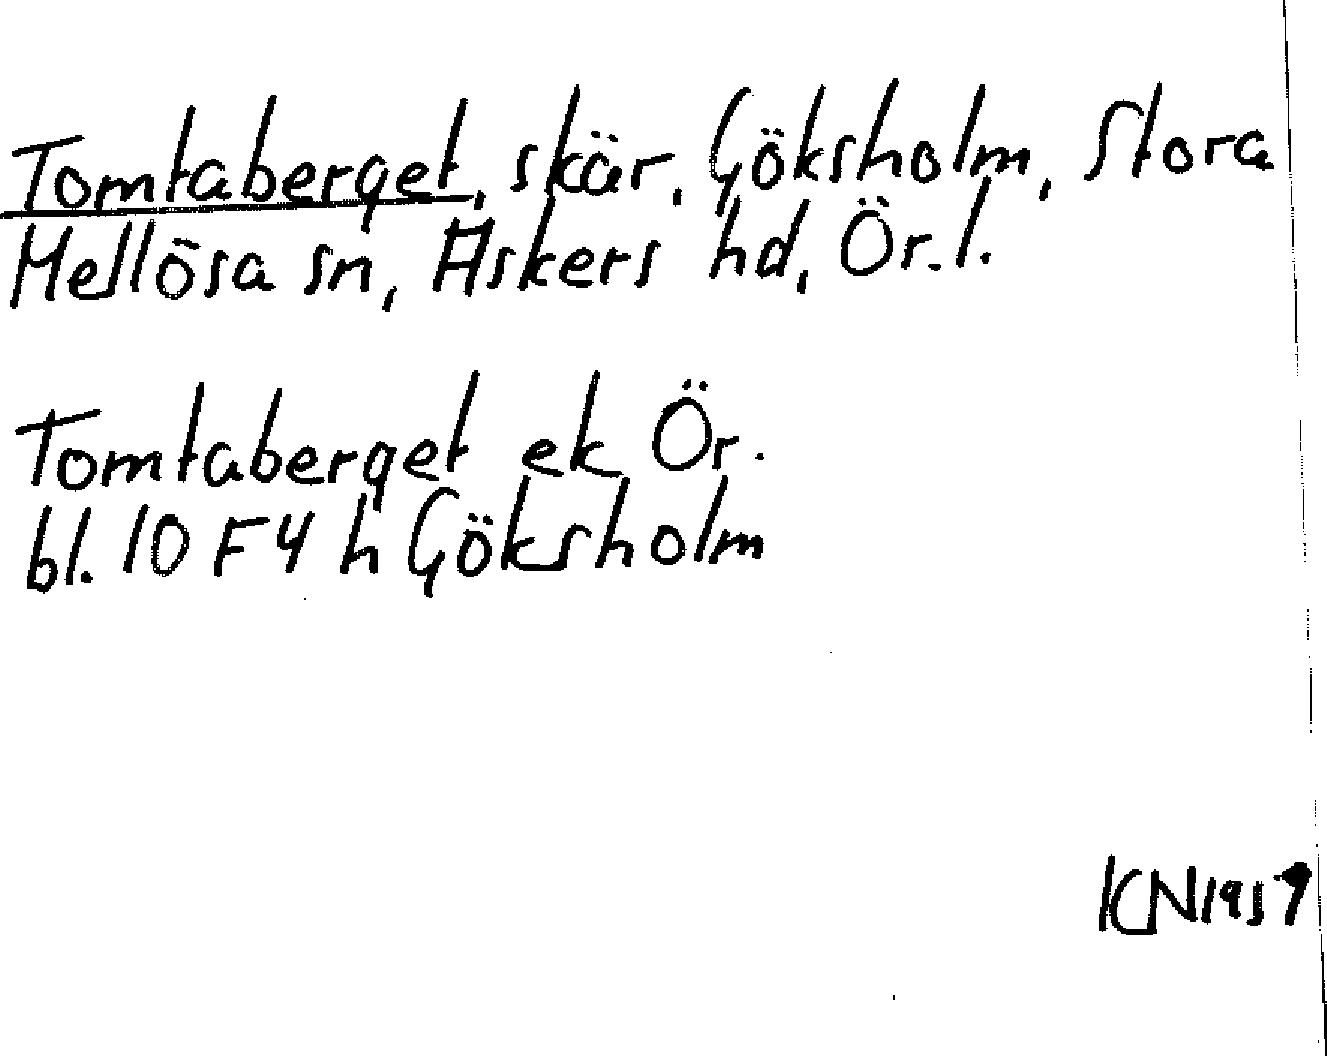 Tomtaberget, skär, Göksholm, Stora
Mellösa sn, Askers hd, Ör. l.
Tomtaberget ek Ör.
bl. 10 F 4 h Göksholm